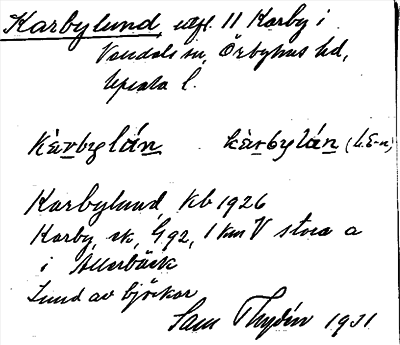 Karbylund, utfl. 11 Karby i
Vendels sn, Örbyhus hd,
Upsala l.
kàrbylán kàrbylán (L.E-n)
Karbylund, kb 1926
Karby, sk, G 92, 1 km V stora a
i
Lund av björkar
Sam Thydén 1931